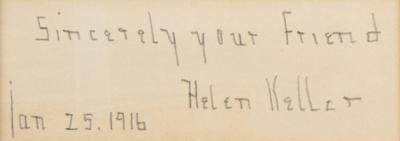 Sincerely your Friend
Helen Keller
Jan 25. 1916